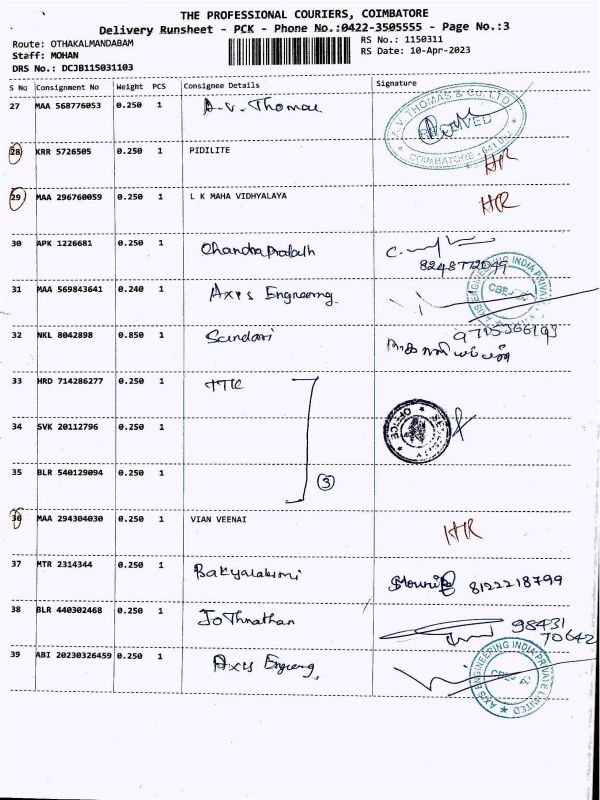 THE PROFESSIONAL COURIERS, COIMBATORE
Delivery Runsheet - PCK - Phone No.:0422-3505555 - Page No.:3
Route: OTHAKALMANDABAM RS No.: 1150311
Staff: MOHAN RS Date: 10-Apr-2023
DRS No.: DCJB115031103
S No Consignment No Weight PCS Consignee Details Signature
27 MAA 568776053 0.250 1 A.V. Thomas
A.V. THOMAS & CO. LTD. RECEIVED COIMBATORE
28 KRR 5726505 0.250 1 PIDILITE HR
29 MAA 296760059 0.250 1 L K MAHA VIDHYALAYA HR
30 APK 1226681 0.250 1 Chandra Prakash
8248772049
31 MAA 569843641 0.240 1 Axis Engineering
AXIS ENGINEERING INDIA PRIVATE
32 NKL 8042898 0.850 1 Sundari
33 HRD 714286277 0.250 1 TTK
34 SVK 20112796 0.250 1
OFFICE
35 BLR 540129094 0.250 1
3
36 MAA 294304030 0.250 1 VIAN VEENAI HR
37 MTR 2314344 0.250 1 Bakyalakshmi 8122218799
38 BLR 440302468 0.250 1 Jo Thnathan 98431
70642
39 ABI 20230326459 0.250 1 Axis Engineering
AXIS ENGINEERING INDIA PRIVATE LIMITED